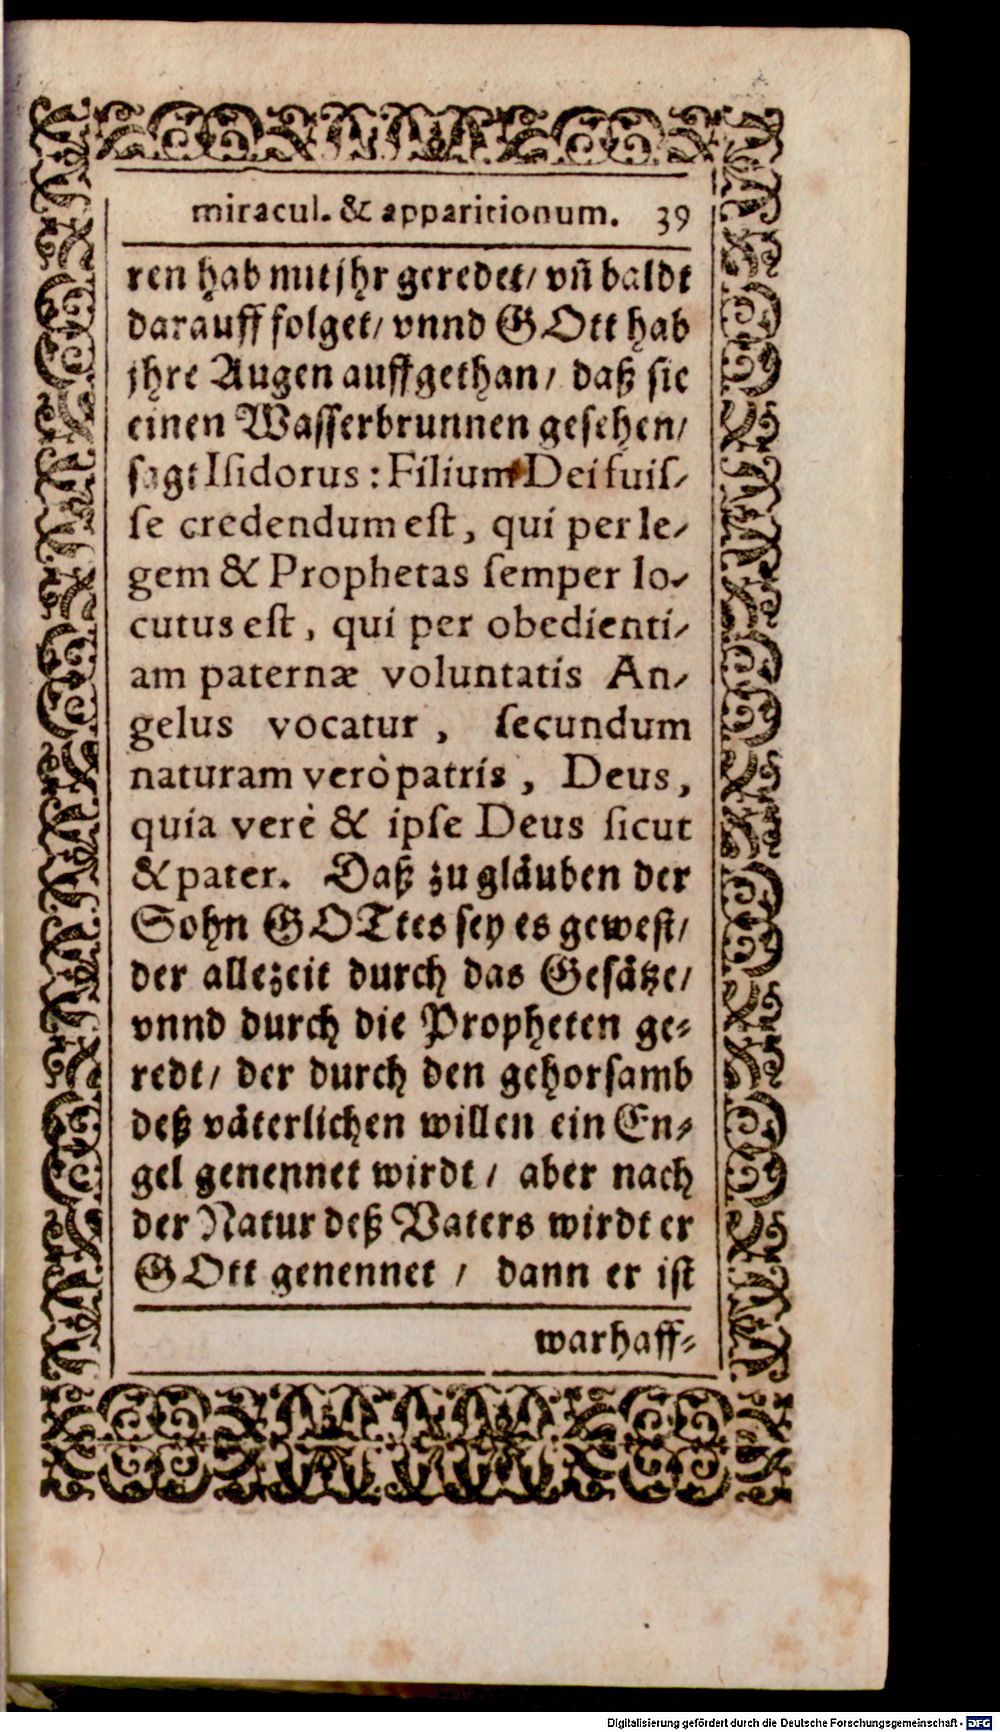 miracul. & apparitionum. 39
ren hab mit jhr geredet/ vn̄ baldt
darauff folget/ vnnd GOtt hab
jhre Augen auffgethan/ daß sie
einen Wasserbrunnen gesehen/
sagt Iſidorus : Filium Dei fuiſ-
ſe credendum eſt, qui per le-
gem & Prophetas ſemper lo-
cutus eſt, qui per obedienti-
am paternæ voluntatis An-
gelus vocatur, ſecundum
naturam verò patris, Deus,
quia verè & ipſe Deus ſicut
& pater. Daß zu gläuben der
Sohn GOTtes sey es gewest/
der allezeit durch das Gesätze/
vnnd durch die Propheten ge-
redt/ der durch den gehorsamb
deß väterlichen willen ein En-
gel genennet wirdt/ aber nach
der Natur deß Vaters wirdt er
GOtt genennet/ dann er ist
warhaff-
Digitalisierung gefördert durch die Deutsche Forschungsgemeinschaft - DFG